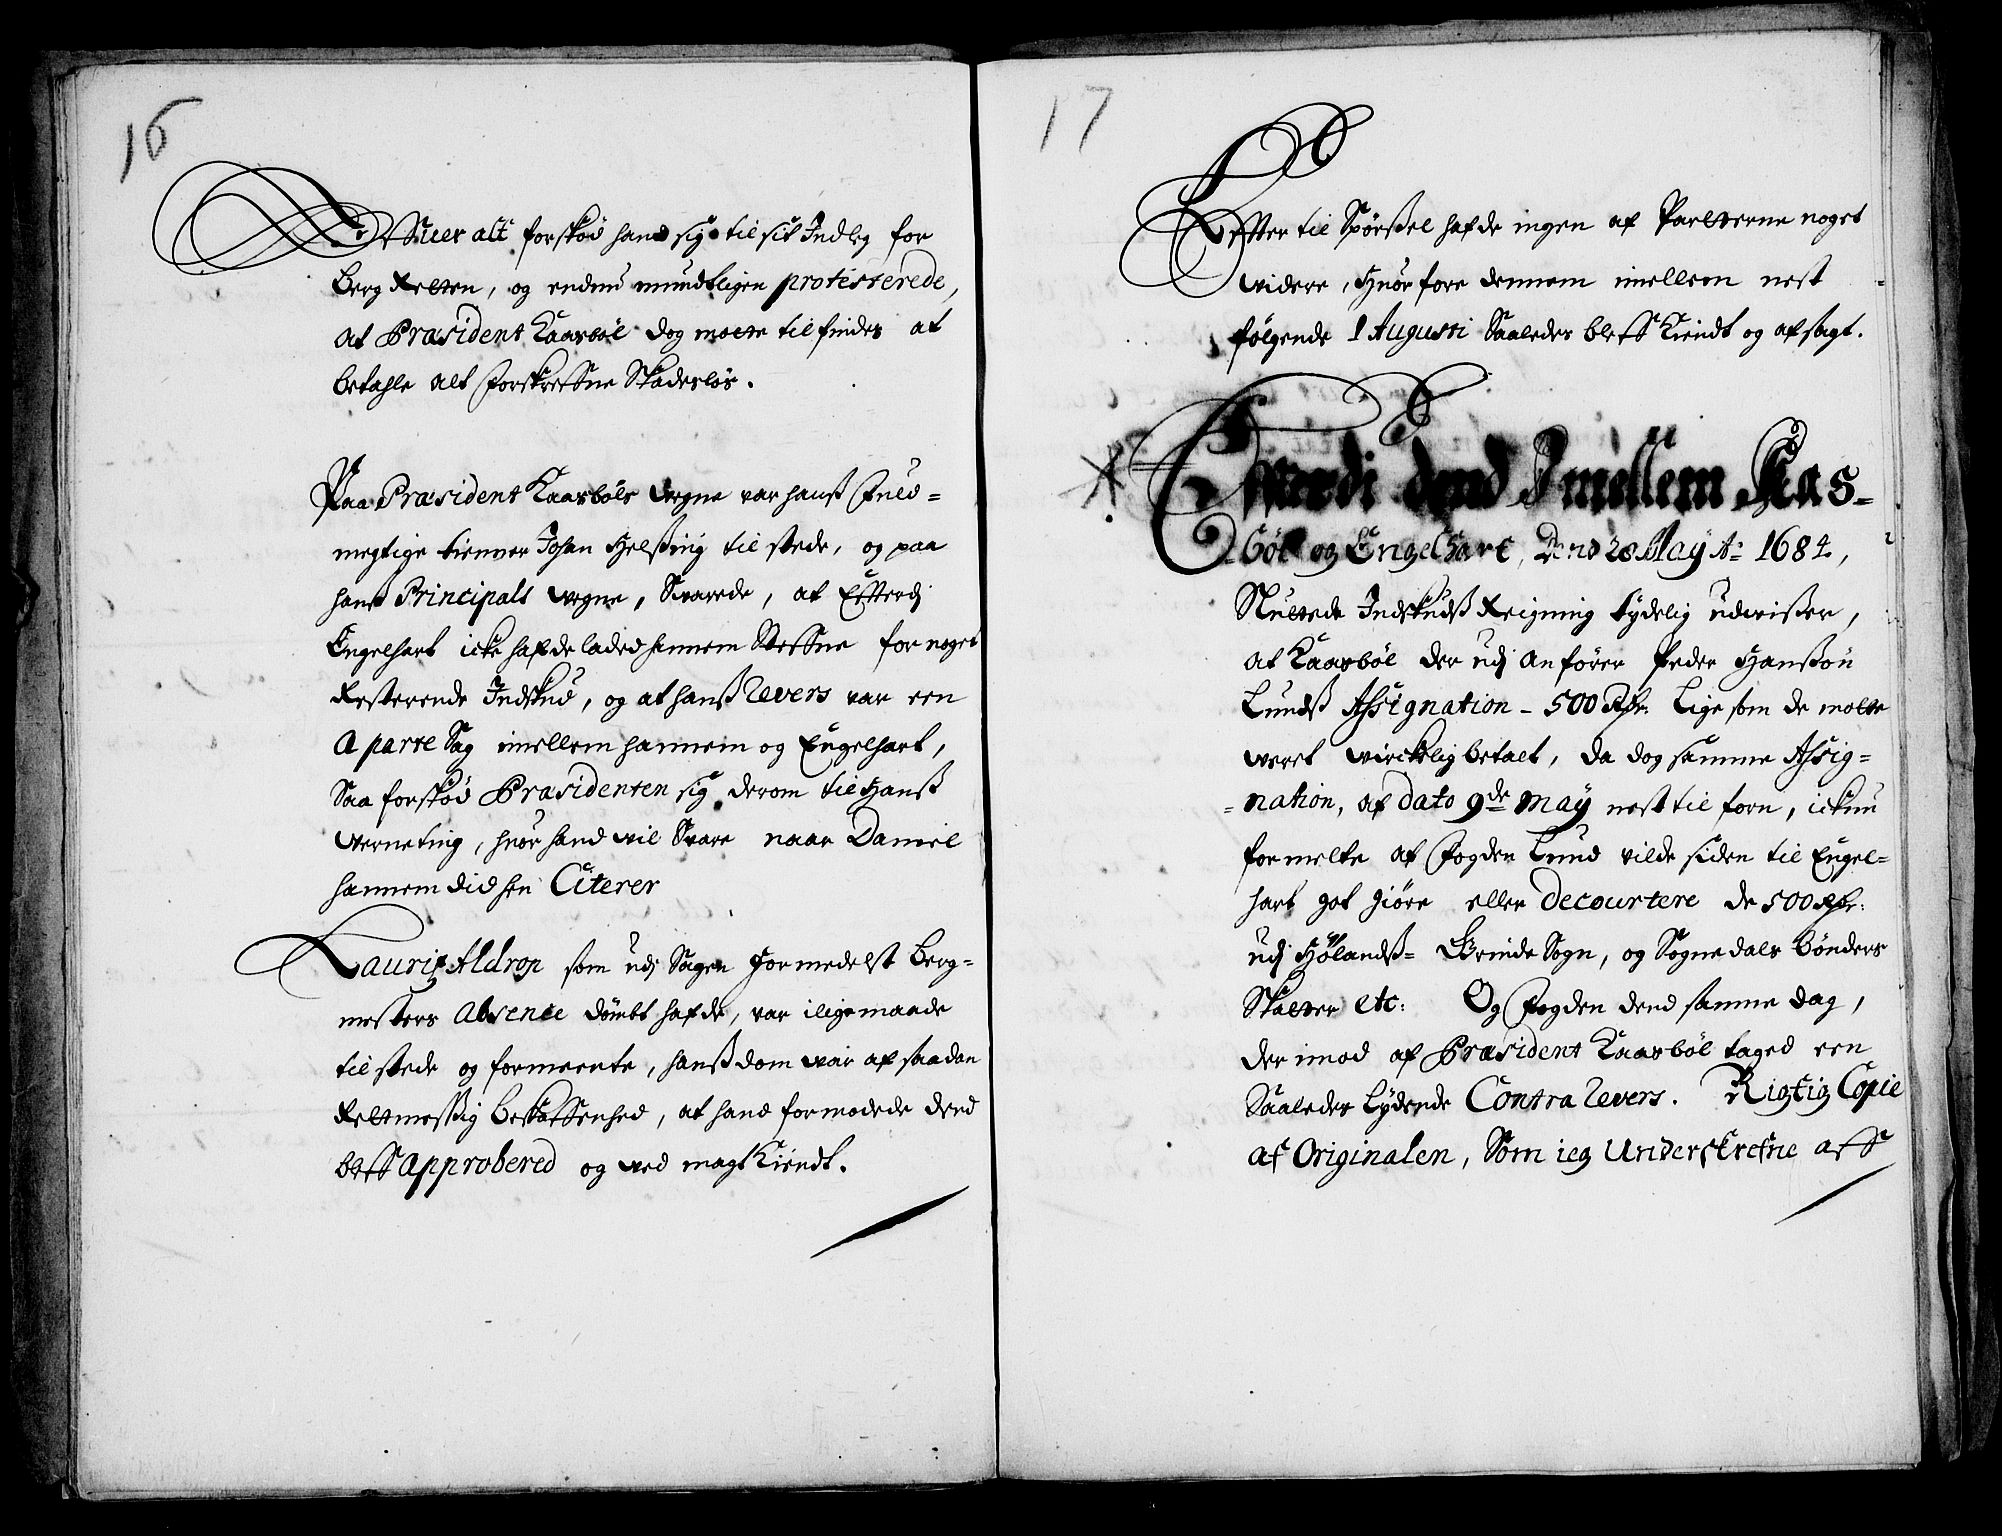 16
Offuer alt forskød hand sig til sit Indleg for
berg Retten, og endnu mundtligen protesterede,
at Præsident Kaasbøl dog motte tilfindes at
betahle alt forskrefne skadesløs.
Paa Præsident Kaasbøls vegne var hanß Fuld=
megtige tienner Johan Helßing til stede, og paa
hanß Principals vegne, Svarede, at Efterdj
Engelhart icke hafde laded hannem steffne for noget
Resterende Indskud, og at hanß Revers var een
a parte Sag imellem hannem og Engelhart,
Saa forskød Præsidenten sig derom til Hanß
verneting, huor hand vil Svare naar Daniel
hannem did hen Citerer
Lauritz Aldrop som udj Sagen formedelst Berg=
mesters Absence dømbt hafde, var iligemaade
til stede og formeente, hanß dom var af saadan
Retmessig beskaffenhed, at hand formodede dend
bleff approbered og ved magt Kiendt.
17
Effter til Spørßel hafde ingen af Parterne noget
videre, Huor fore dennem imellem nest
følgende 1 Augusti Saaledes bleff Kiendt og afsagt.
Efterdi dend Imellem Kas=
=bøl og Engelhart, Dend 28 May A: 1684,
Sluttede Indskudß Reigning tydelig udvißer,
at Kaasbøl der udj anfører Peder Hanßøn
Lundß Assignation - 500 Rdr: Lige som de motte
veret virckelig betalt, da dog samme Assig=
=nation, af dato 9de May nest til forn, ickun
formelte at Fogden Lund vilde siden til Engel=
hart got giøre eller decourtere de 500 Rdr:
udj Hølandß= Eninde Sogn, og Sognedals bønders
Skatter etc: Og Fogden dend samme dag,
der imod af Præsident Kaasbøl taged een
Saaledes Lydende Contra Revers. Rigtig Copie
af Originalen, Som ieg Underskrefne aff